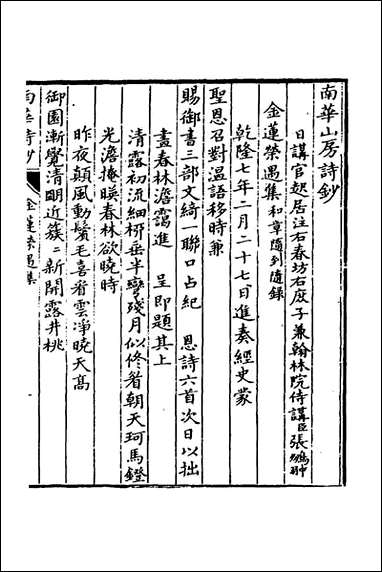 南華山房詩鈔
日講官起居注右春坊右庶子兼翰林院侍講臣張鵬翀
金蓮榮遇集和章隨到隨錄
乾隆七年二月二十七日進奏經史蒙
聖恩召對溫語移時兼
賜御書三部文綺一聯口占紀　恩詩六首次日以拙
畫春林澹靄進　呈即題其上
清露初流細柳垂半彎殘月似修眉朝天珂馬鐙
光澹掩暎春林欲曉時
昨夜顛風動鬢毛喜看雲凈曉天高
御園漸覺清明近簇二新開露井桃
南華詩鈔　金蓮榮遇集